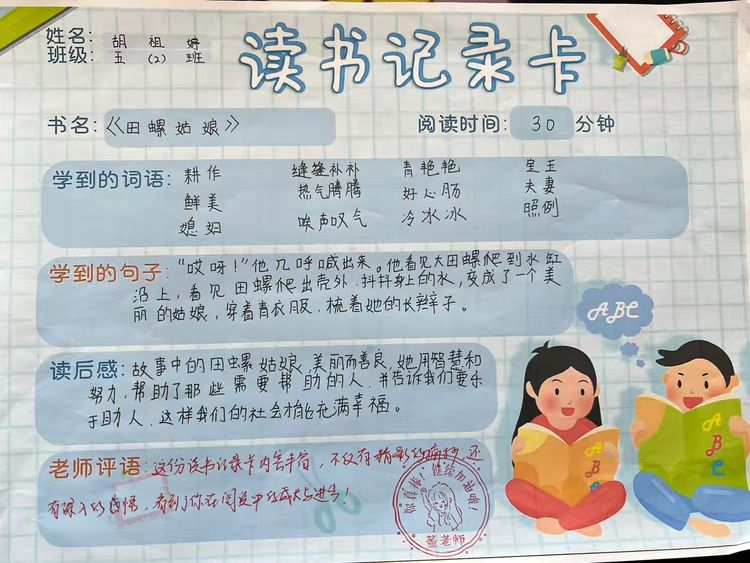 读书记录卡
姓名: 胡祖婷
班级: 五(2)班
书名:《田螺姑娘》 阅读时间: 30 分钟
学到的词语: 耕作 缝缝补补 青艳艳 皇王
鲜美 热气腾腾 好心肠 夫妻
媳妇 唉声叹气 冷冰冰 照例
学到的句子: “哎呀!”他几呼喊出来。他看见大田螺爬到水缸
沿上,看见田螺爬出壳外.抖抖身上的水,变成了一个美
丽的姑娘,穿着青衣服.梳着她的长辫子。
读后感: 故事中的田螺姑娘,美丽而善良,她用智慧和
努力,帮助了那些需要帮助的人.并告诉我们要乐
于助人.这样我们的社会才能充满幸福。
老师评语: 这份读书记录卡内容丰富,不仅有精彩的摘抄,还
有深入的感悟,看到了你在阅读中的成长与进步!
你真棒!继续加油哦!
董老师
ABC
A
B
C
A
B
C